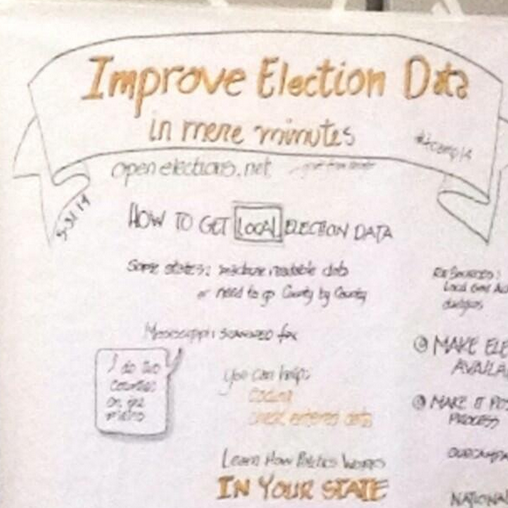 Improve Election Data
in mere minutes
#tcamp14
openelections.net
5-31-14
HOW TO GET LOCAL ELECTION DATA
Some states: machine readable data
or need to go County by County
Mississippi: scanned fax
I do two
counties
on the
metro
You can help:
Coding
check entered data
Learn How Politics Works
IN YOUR STATE
RESOURCES:
Local
MAKE ELE
AVAILA
MAKE IT POS
PROCESS
NATIONAL